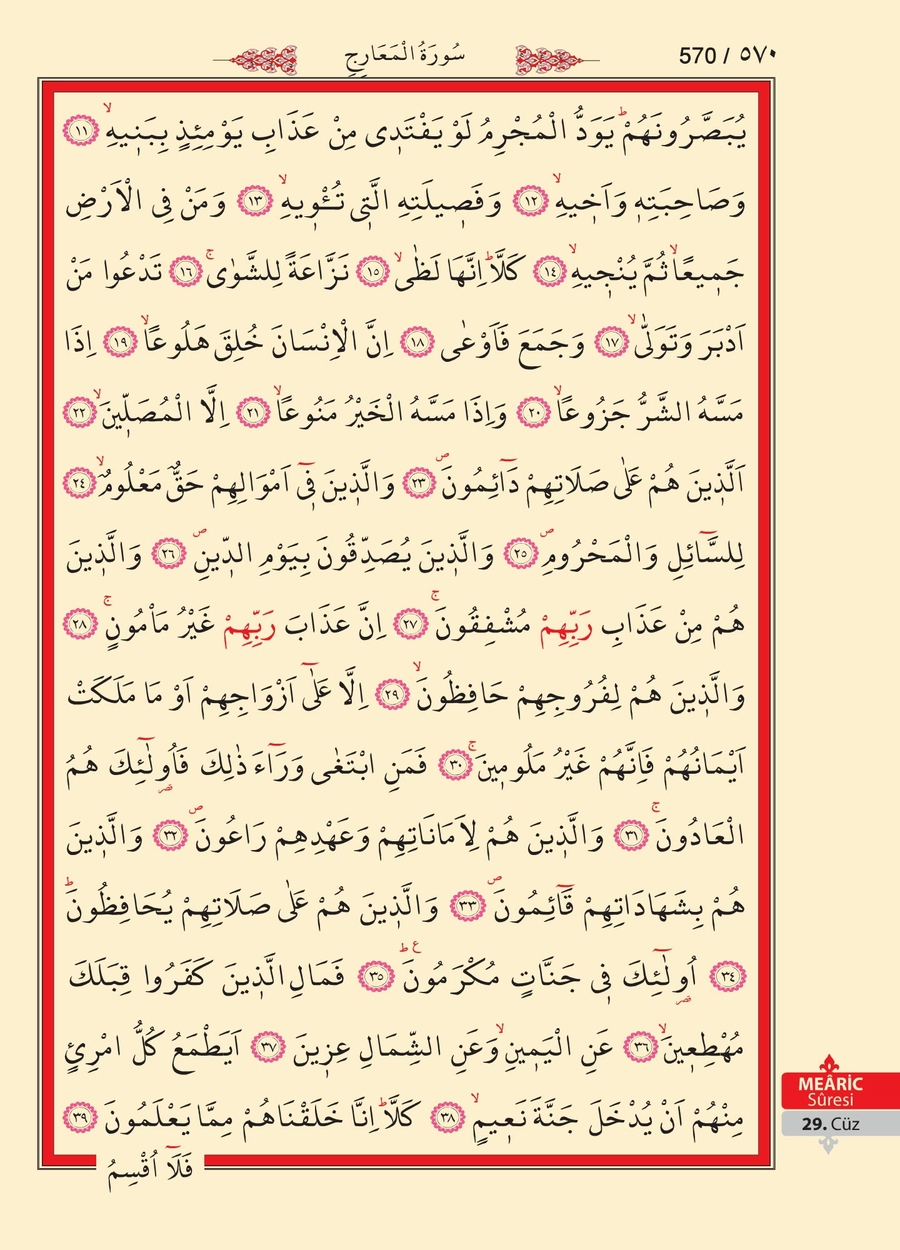 سُورَةُ الْمَعَارِجِ
570 / ٥٧٠
يُبَصَّرُونَهُمْۜ يَوَدُّ الْمُجْرِمُ لَوْ يَفْتَد۪ي مِنْ عَذَابِ يَوْمِئِذٍ بِبَن۪يهِۙ ﴿١١﴾
وَصَاحِبَتِه۪ وَاَخ۪يهِۙ ﴿١٢﴾ وَفَص۪يلَتِهِ الَّت۪ي تُـْٔو۪يهِۙ ﴿١٣﴾ وَمَنْ فِي الْاَرْضِ
جَم۪يعًاۙ ثُمَّ يُنْج۪يهِۙ ﴿١٤﴾ كَلَّاۜ اِنَّهَا لَظٰىۙ ﴿١٥﴾ نَزَّاعَةً لِلشَّوٰىۚ ﴿١٦﴾ تَدْعُوا مَنْ
اَدْبَرَ وَتَوَلّٰىۙ ﴿١٧﴾ وَجَمَعَ فَاَوْعٰى ﴿١٨﴾ اِنَّ الْاِنْسَانَ خُلِقَ هَلُوعًاۙ ﴿١٩﴾ اِذَا
مَسَّهُ الشَّرُّ جَزُوعًاۙ ﴿٢٠﴾ وَاِذَا مَسَّهُ الْخَيْرُ مَنُوعًاۙ ﴿٢١﴾ اِلَّا الْمُصَلّ۪ينَۙ ﴿٢٢﴾
اَلَّذ۪ينَ هُمْ عَلٰى صَلَاتِهِمْ دَٓائِمُونَۖ ﴿٢٣﴾ وَالَّذ۪ينَ ف۪ٓي اَمْوَالِهِمْ حَقٌّ مَعْلُومٌۙ ﴿٢٤﴾
لِلسَّٓائِلِ وَالْمَحْرُومِۖ ﴿٢٥﴾ وَالَّذ۪ينَ يُصَدِّقُونَ بِيَوْمِ الدّ۪ينِۖ ﴿٢٦﴾ وَالَّذ۪ينَ
هُمْ مِنْ عَذَابِ رَبِّهِمْ مُشْفِقُونَۚ ﴿٢٧﴾ اِنَّ عَذَابَ رَبِّهِمْ غَيْرُ مَاْمُونٍۚ ﴿٢٨﴾
وَالَّذ۪ينَ هُمْ لِفُرُوجِهِمْ حَافِظُونَۙ ﴿٢٩﴾ اِلَّا عَلٰٓى اَزْوَاجِهِمْ اَوْ مَا مَلَكَتْ
اَيْمَانُهُمْ فَاِنَّهُمْ غَيْرُ مَلُوم۪ينَۚ ﴿٣٠﴾ فَمَنِ ابْتَغٰى وَرَٓاءَ ذٰلِكَ فَاُو۬لٰٓئِكَ هُمُ
الْعَادُونَۚ ﴿٣١﴾ وَالَّذ۪ينَ هُمْ لِاَمَانَاتِهِمْ وَعَهْدِهِمْ رَاعُونَۖ ﴿٣٢﴾ وَالَّذ۪ينَ
هُمْ بِشَهَادَاتِهِمْ قَٓائِمُونَۖ ﴿٣٣﴾ وَالَّذ۪ينَ هُمْ عَلٰى صَلَاتِهِمْ يُحَافِظُونَۜ
﴿٣٤﴾ اُو۬لٰٓئِكَ ف۪ي جَنَّاتٍ مُكْرَمُونَۜ ع ﴿٣٥﴾ فَمَالِ الَّذ۪ينَ كَفَرُوا قِبَلَكَ
مُهْطِع۪ينَۙ ﴿٣٦﴾ عَنِ الْيَم۪ينِ وَعَنِ الشِّمَالِ عِز۪ينَ ﴿٣٧﴾ اَيَطْمَعُ كُلُّ امْرِئٍ
مِنْهُمْ اَنْ يُدْخَلَ جَنَّةَ نَع۪يمٍۙ ﴿٣٨﴾ كَلَّاۜ اِنَّا خَلَقْنَاهُمْ مِمَّا يَعْلَمُونَ ﴿٣٩﴾
فَلَٓا اُقْسِمُ
MEÂRİC
Sûresi
29. Cüz